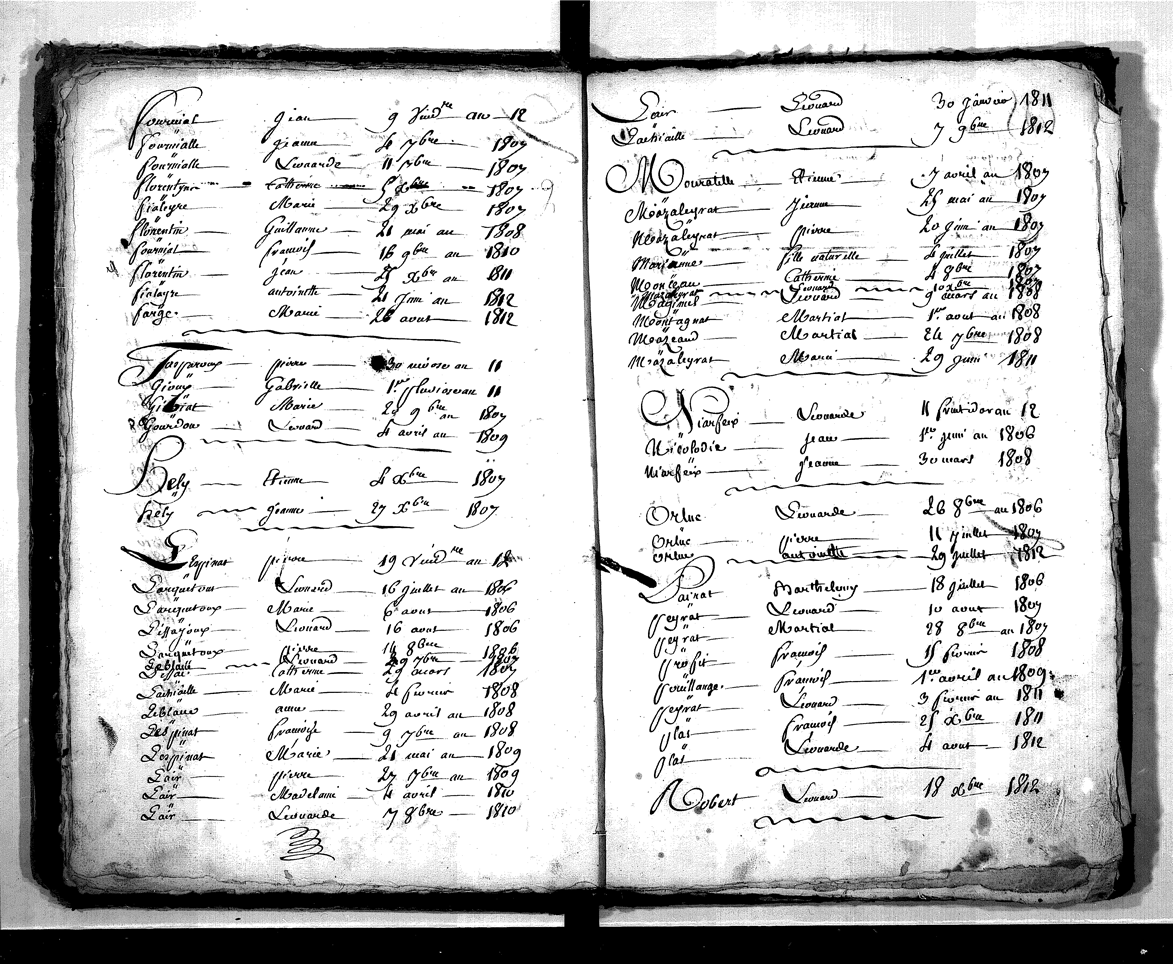 Fournial — jean — 9 Vend.re an — 12
fournialle — jeanne — 4 7bre — 1807
fournialle — Leonarde — 11 7bre — 1807
florentin — Catherine — 5 xbre — 1807
fialeyre — Marie — 29 xbre — 1807
florentin — Guillaume — 21 mai an — 1808
fournial — francois — 16 9bre an — 1810
florentin — jean — 25 xbre an — 1811
fialeyre — antoinette — 21 juin an — 1812
farge — Marie — 26 aout — 1812
pierre — 30 nivose an — 11
Gioux — Gabrielle — 1er pluviose an 11
Marie — 25 9bre an — 1807
Gourdon — Leonard — 4 avril an — 1809
Hely — Etienne — 4 xbre — 1807
hely — jeanne — 27 xbre — 1807
Lespinat — pierre — 19 Vend.re an 12
Larquetoux — Leonard — 16 juillet an — 1806
Larquetoux — Marie — 6 aout — 1806
Leonard — 16 aout — 1806
Larquetoux — pierre — 14 8bre — 1806
Leblanc — Leonard — 29 7bre — 1807
Catherine — 29 mars — 1807
Lachiaille — Marie — 4 fevrier — 1808
Leblanc — anne — 29 avril an — 1808
Lespinat — francoise — 9 7bre an — 1808
Lespinat — Marie — 21 mai an — 1809
Lair — pierre — 27 7bre an — 1809
Lair — Madelaine — 4 avril — 1810
Lair — Leonarde — 7 8bre — 1810
Lair — Leonard — 30 janvier 1811
Lachiaille — Leonard — 7 9bre — 1812
Mouratille — Etienne — 7 avril an 1807
Mazaleyrat — jeanne — 25 mai an — 1807
Mazaleyrat — pierre — 20 juin an — 1807
Marianne — fille naturelle — 4 juillet — 1807
Monteau — Catherine — 4 8bre — 1807
Mazaleyrat — Leonard — 10 xbre 1807
Magimel — Leonard — 9 mars an 1808
Montagnat — Martial — 1er aout an 1808
Mazeaud — Martial — 24 7bre — 1808
Mazaleyrat — Marie — 29 juin — 1811
Niarfeix — Leonarde — 11 fruct dor an 12
Nicolodie — jean — 1er juin an 1806
Niarfeix — jeanne — 30 mars 1808
Orluc — Leonarde — 26 8bre an 1806
Orluc — pierre — 11 juillet — 1807
Orluc — antoinette — 29 juillet — 1812
Pairat — Barthelemy — 18 juillet — 1806
peyrat — Leonard — 10 aout — 1807
peyrat — Martial — 28 8bre an 1807
profit — francois — 15 fevrier — 1808
pouillange — francois — 1er avril an 1809
peyrat — Leonard — 3 fevrier an 1811
plas — francois — 25 xbre — 1811
plas — Leonarde — 4 aout — 1812
Robert — Leonard — 18 xbre — 1812